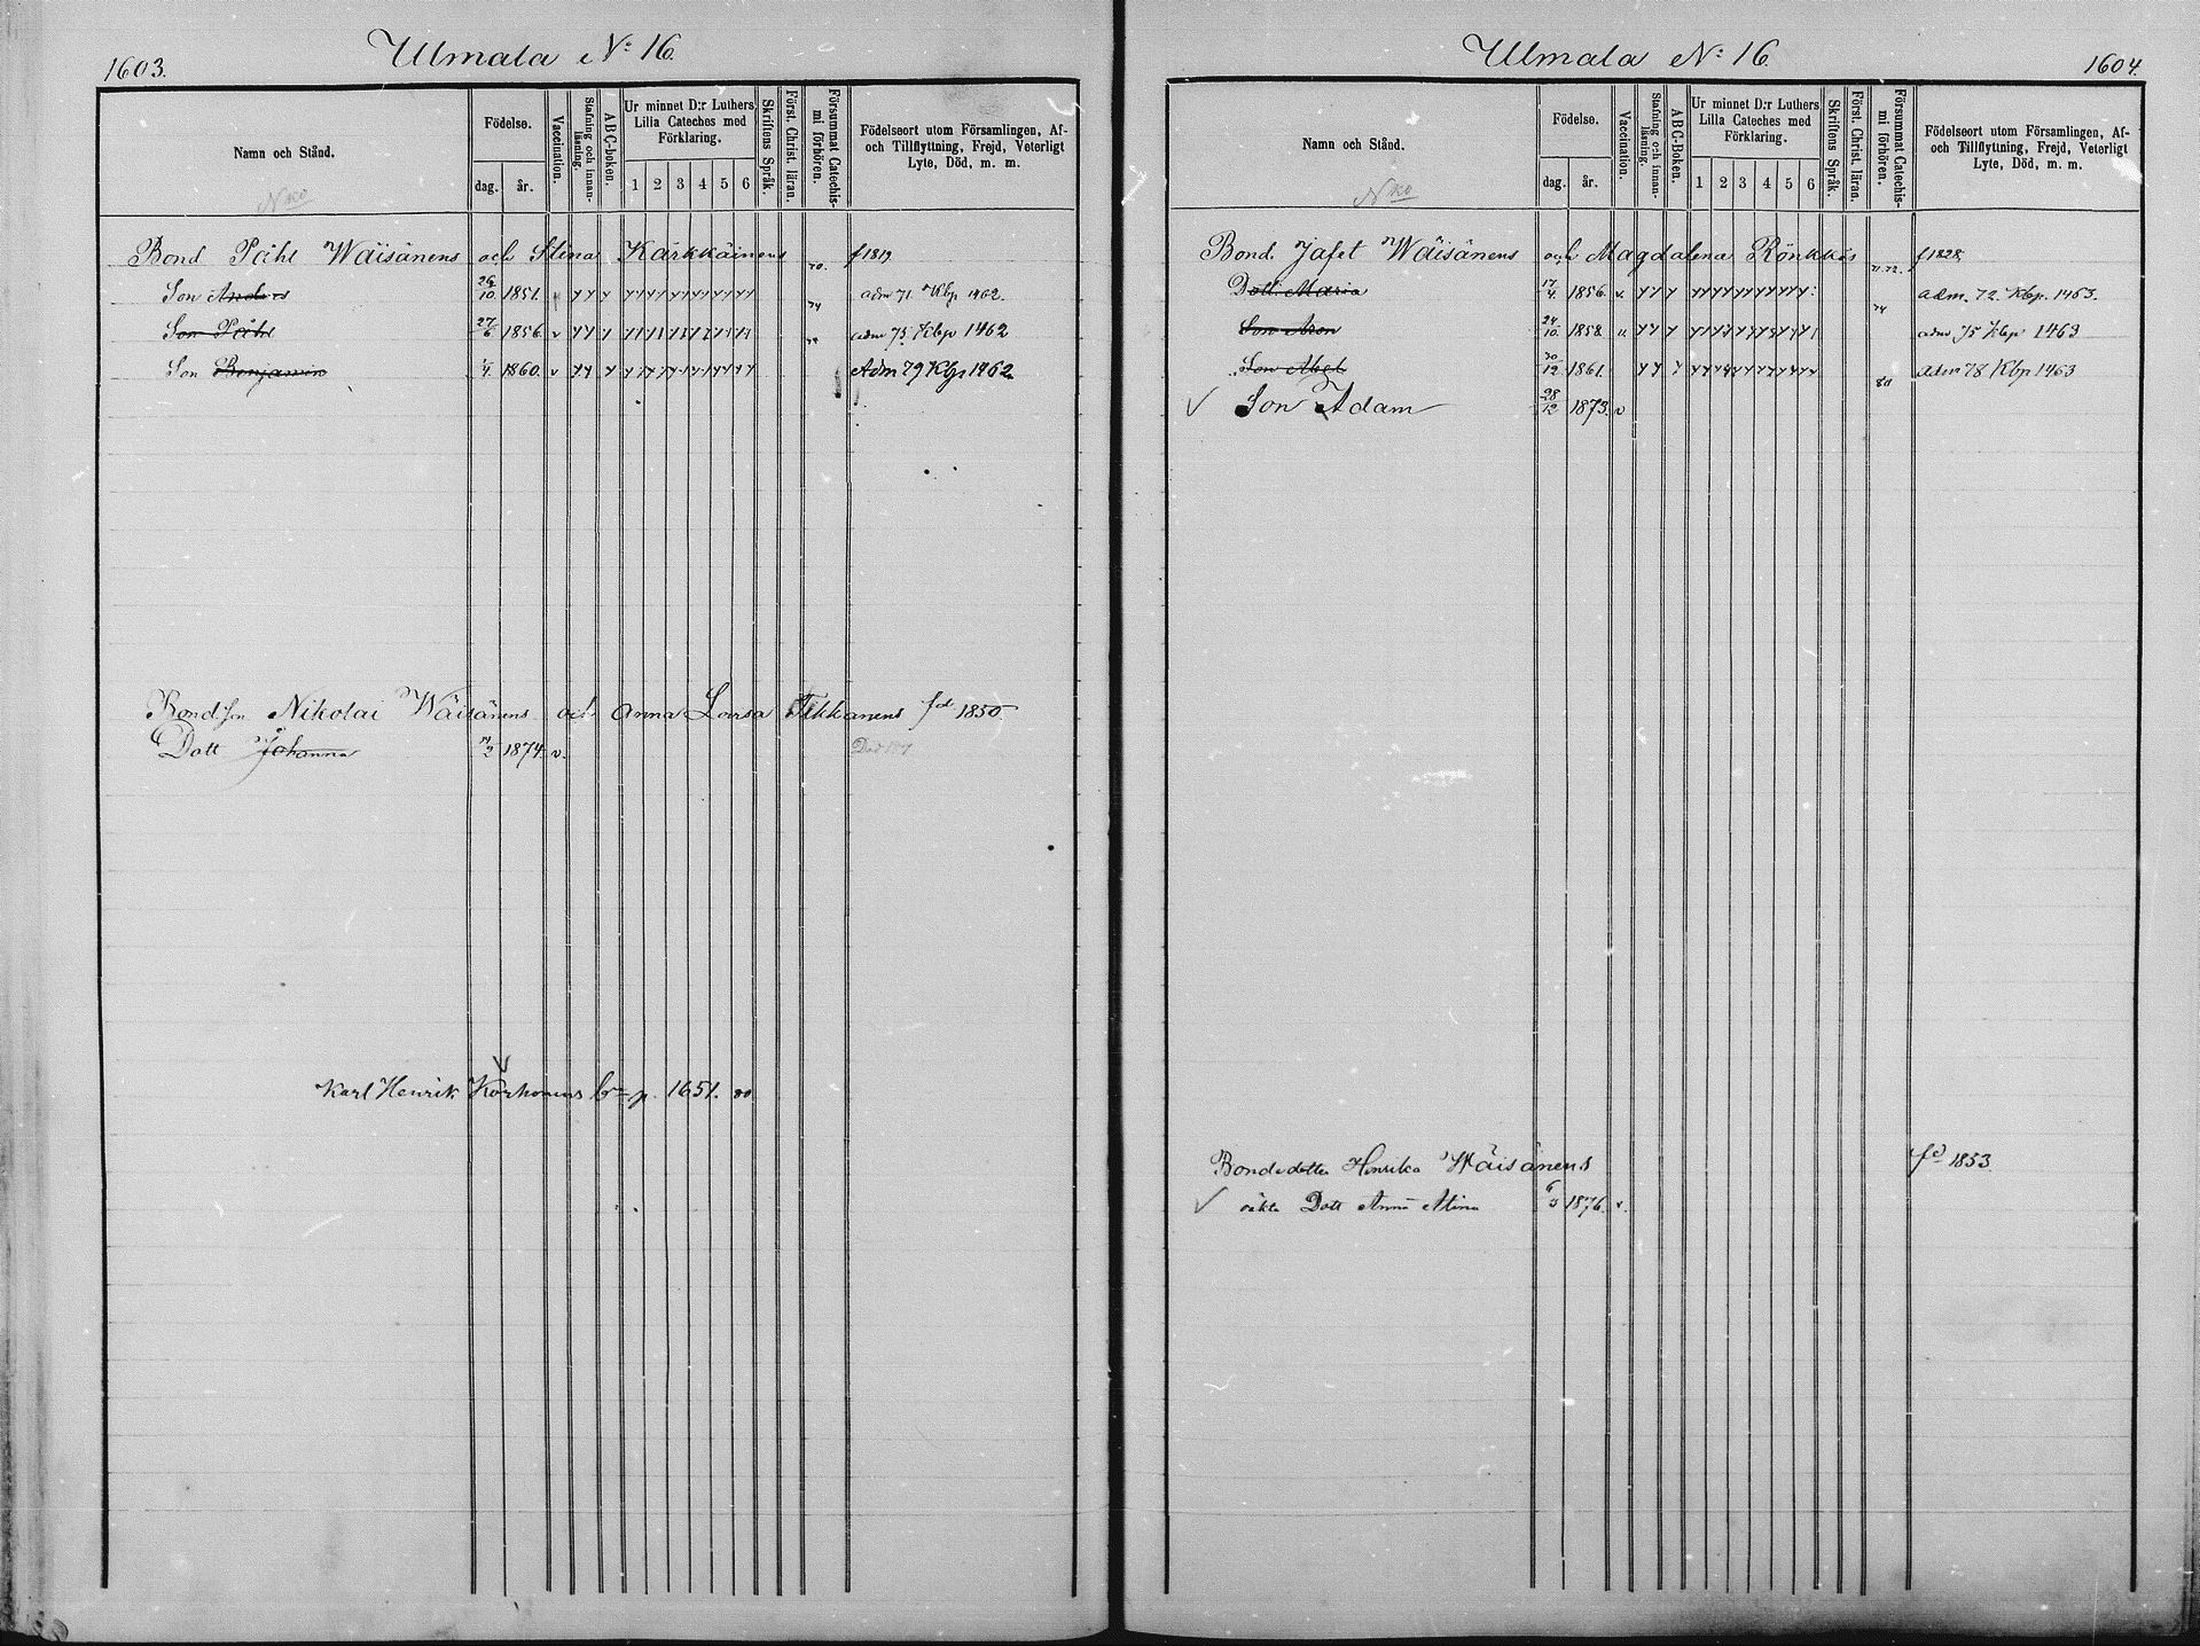 1603.
Ulmala No: 16.
Namn och Stånd.
Födelse.
dag.
år.
Vaccination.
Stafning och innan-
läsning.
ABC-boken.
Ur minnet D:r Luthers
Lilla Cateches med
Förklaring.
1 2 3 4 5 6
Skriftens Språk.
Först. Christ. läran.
Försummat Catechis-
mi förhören.
Födelseort utom Församlingen, Af-
och Tillflyttning, Frejd, Veterligt
Lyte, Död, m. m.
Bond Påhl Wäisänens och Stina Kärkkäinens 70. f 1819
Son Anders 26/10 1851. adm 71. Kbp 1462.
Son Påhl 27/6 1856 v 74 adm 75. Kbp 1462
Son Benjamin 1860. v Adm 79 Kbp 1462
Bond Son Nikolai Wäisänens och Anna Lovisa Tikkanens fd 1850
Dott Johanna 1874. v.
Karl Henrik Korhonens p. 1651. 80
1604.
Ulmala No: 16.
Namn och Stånd.
Födelse.
dag.
år.
Vaccination.
Stafning och innan-
läsning.
ABC-Boken.
Ur minnet D:r Luthers
Lilla Cateches med
Förklaring.
1 2 3 4 5 6
Skriftens Språk.
Först. Christ. läran.
Försummat Catechis-
mi förhören.
Födelseort utom Församlingen, Af-
och Tillflyttning, Frejd, Veterligt
Lyte, Död, m. m.
Bond. Jafet Wäisänens och Magdalena Rönkkös 71.72. f 1828
Dott. Maria 17/4. 1856. v. adm. 72. Kbp. 1463.
Son Aron 24/10. 1858 74 adm 75 Kbp 1463
Son Abel 30/12 1861. adm 78 Kbp 1463
Son Adam 28/12 1873. v 80
Bondedotter Henrika Wäisänens fd 1853.
oäkta Dott Anna Stina 1876. v.